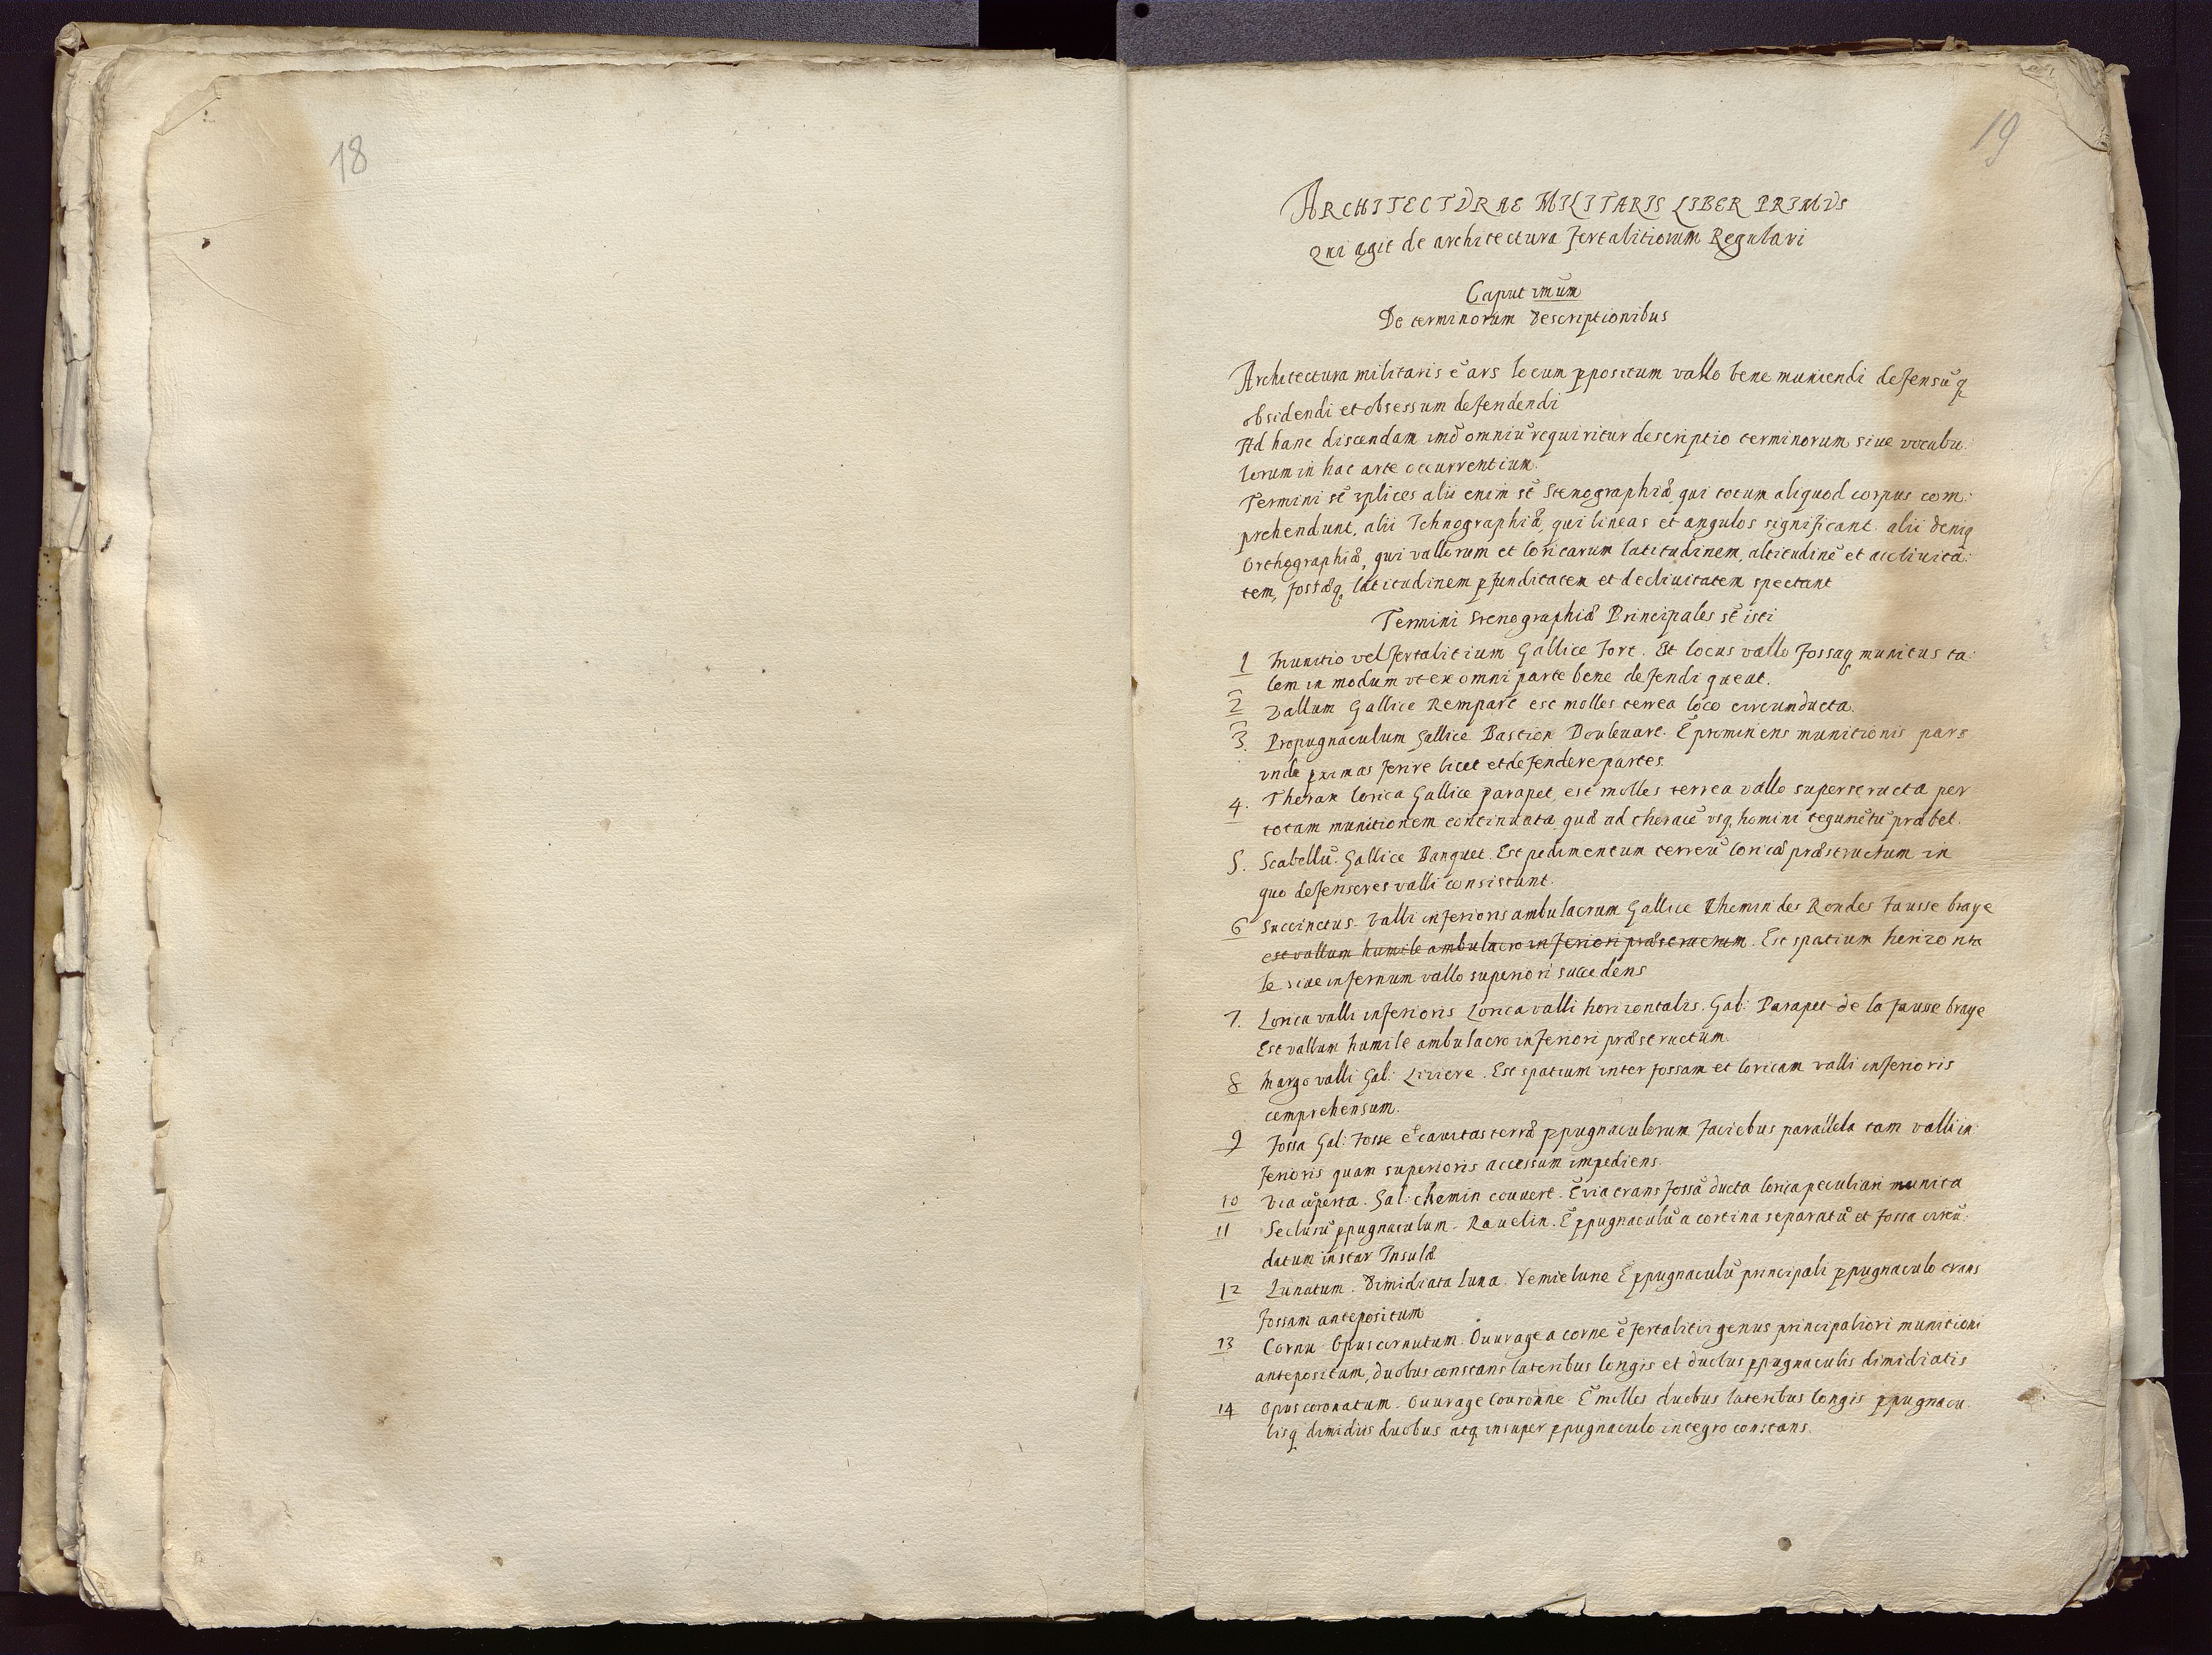 18
19
ARCHITECTVRAE MILITARIS LIBER PRIMVS
Qui agit de architectura fortalitiorum Regulari
Caput 1mum
De terminorum descriptionibus
Architectura militaris ē ars locum ppositum vallo bene muniendi defensūq
obsidendi et obsessum defendendi
Ad hanc discendam imō omniū requiritur descriptio terminorum siue vocabu:
lorum in hac arte occurrentium.
Termini st̄ 3plices alii enim st̄ Stenographiæ, qui totum aliquod corpus com:
prehendunt, alii Ichnographiæ, qui lineas et angulos significant. alii deniq
Orthographiæ, qui vallorum et loricarum latitudinem, altitudinē et accliuita:
tem, fossæq, latitudinem pfunditatem et decliuitatem spectant
Termini Stenographiæ Principales st̄ isti
1 Munitio vel fortalitium Gallice Fort. Est locus vallo fossaq munitus ta:
lem in modum vt ex omni parte bene defendi queat.
2 Vallum Gallice Rempart est molles terrea loco circunducta.
3. Propugnaculum Gallice Bastion Bouleuart. Ē prominens munitionis pars
vnde pximas ferire licet et defendere partes.
4. Thorax lorica Gallice parapet, est molles terrea vallo superstructa per
totam munitionem continuata quæ ad thoracē vsq, homini tegumētū præbet.
5. Scabellū. Gallice Banquet. Est pedimentum terreū loricæ præstructum in
quo defensores valli consistunt.
6 Succinctus. Valli inferioris ambulacrum Gallice Chemin des Rondes Fausse braye
est vallum humile ambulacro inferiori præstructum. Est spatium horizonta
le siue infernum vallo superiori succedens
7. Lorica valli inferioris Lorica valli horizontalis. Gal: Parapet de la fausse braye
Est vallum humile ambulacro inferiori præstructum.
8 Margo valli Gal: Liziere. Est spatium inter fossam et loricam valli inferioris
comprehensum.
9 Fossa Gal: Fosse ē cauitas terræ ppugnaculorum faciebus parallela tam valli in:
ferioris quam superioris accessum impediens.
10 Via coperta. Gal: chemin couuert. Ē via trans fossā ducta lorica peculiari munita
11 Seclusū ppugnaculum. Rauelin. Ē ppugnaculū a cortina separatū et fossa circū:
datum instar Insulæ
12 Lunatum. Dimidiata luna. Demie lune Ē ppugnaculū principali ppugnaculo trans
fossam antepositum
13 Cornu Opus cornutum. Ouurage a corne ē fortalitii genus principaliori munitioni
antepositum, duobus constans lateribus longis et duobus ppugnaculis dimidiatis
14 Opus coronatum. Ouurage Couronne. Ē molles duobus lateribus longis ppugnacu
lisq dimidiis duobus atq insuper ppugnaculo integro constans.